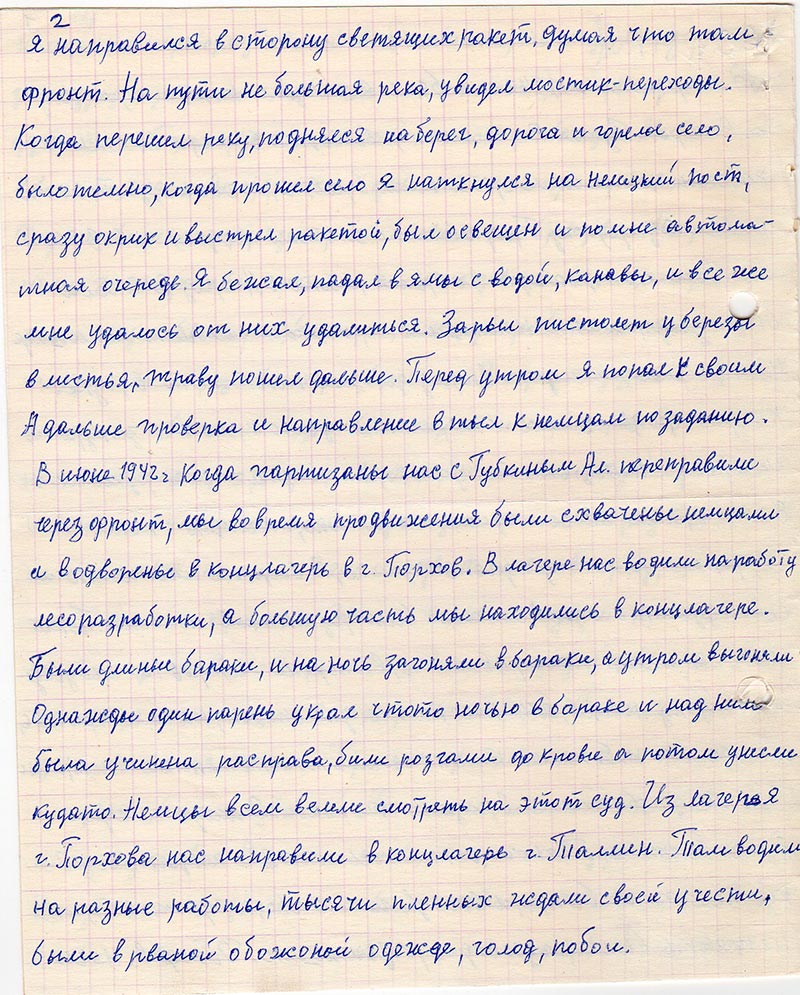 2
Я направился в сторону светящих ракет, думая что там
фронт. На пути не большая река, увидел мостик-переходы.
Когда перешел реку, поднялся на берег, дорога и горелое село,
было темно, когда прошел село я наткнулся на немецкий пост,
сразу окрик и выстрел ракетой, был освещен и по мне автома-
тная очередь. Я бежал, падал в ямы с водой, канавы, и все же
мне удалось от них удалиться. Зарыл пистолет у березы
в листья, траву пошел дальше. Перед утром я попал к своим
А дальше проверка и направление в тыл к немцам по заданию.
В июне 1942 г. Когда партизаны нас с Губкиным Ал. переправили
через фронт, мы во время продвижения были схвачены немцами
и водворены в концлагерь в г. Порхов. В лагере нас водили на работу
лесоразработки, а большую часть мы находились в концлагере.
Были длиные бараки, и на ночь загоняли в бараки, а утром выгоняли
Однажды один парень украл чтото ночью в бараке и над ним
была учинена расправа, били розгами до крови а потом унесли
кудато. Немцы всем велели смотреть на этот суд. Из лагеря
г. Порхова нас направили в концлагерь г. Таллин. Там водили
на разные работы, тысячи пленных ждали своей участи,
были в рваной обожоной одежде, голод, побои.